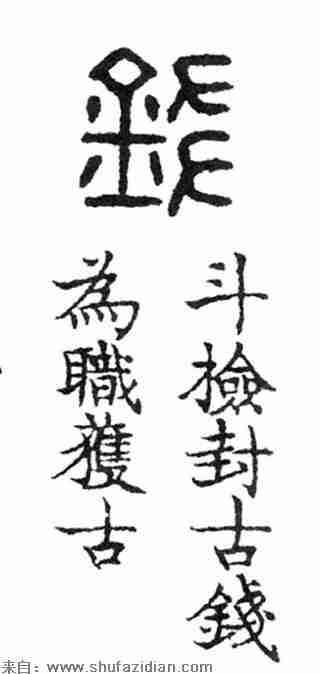 錢
斗檢封古錢
為職獲古
来自：www.shufazidian.com